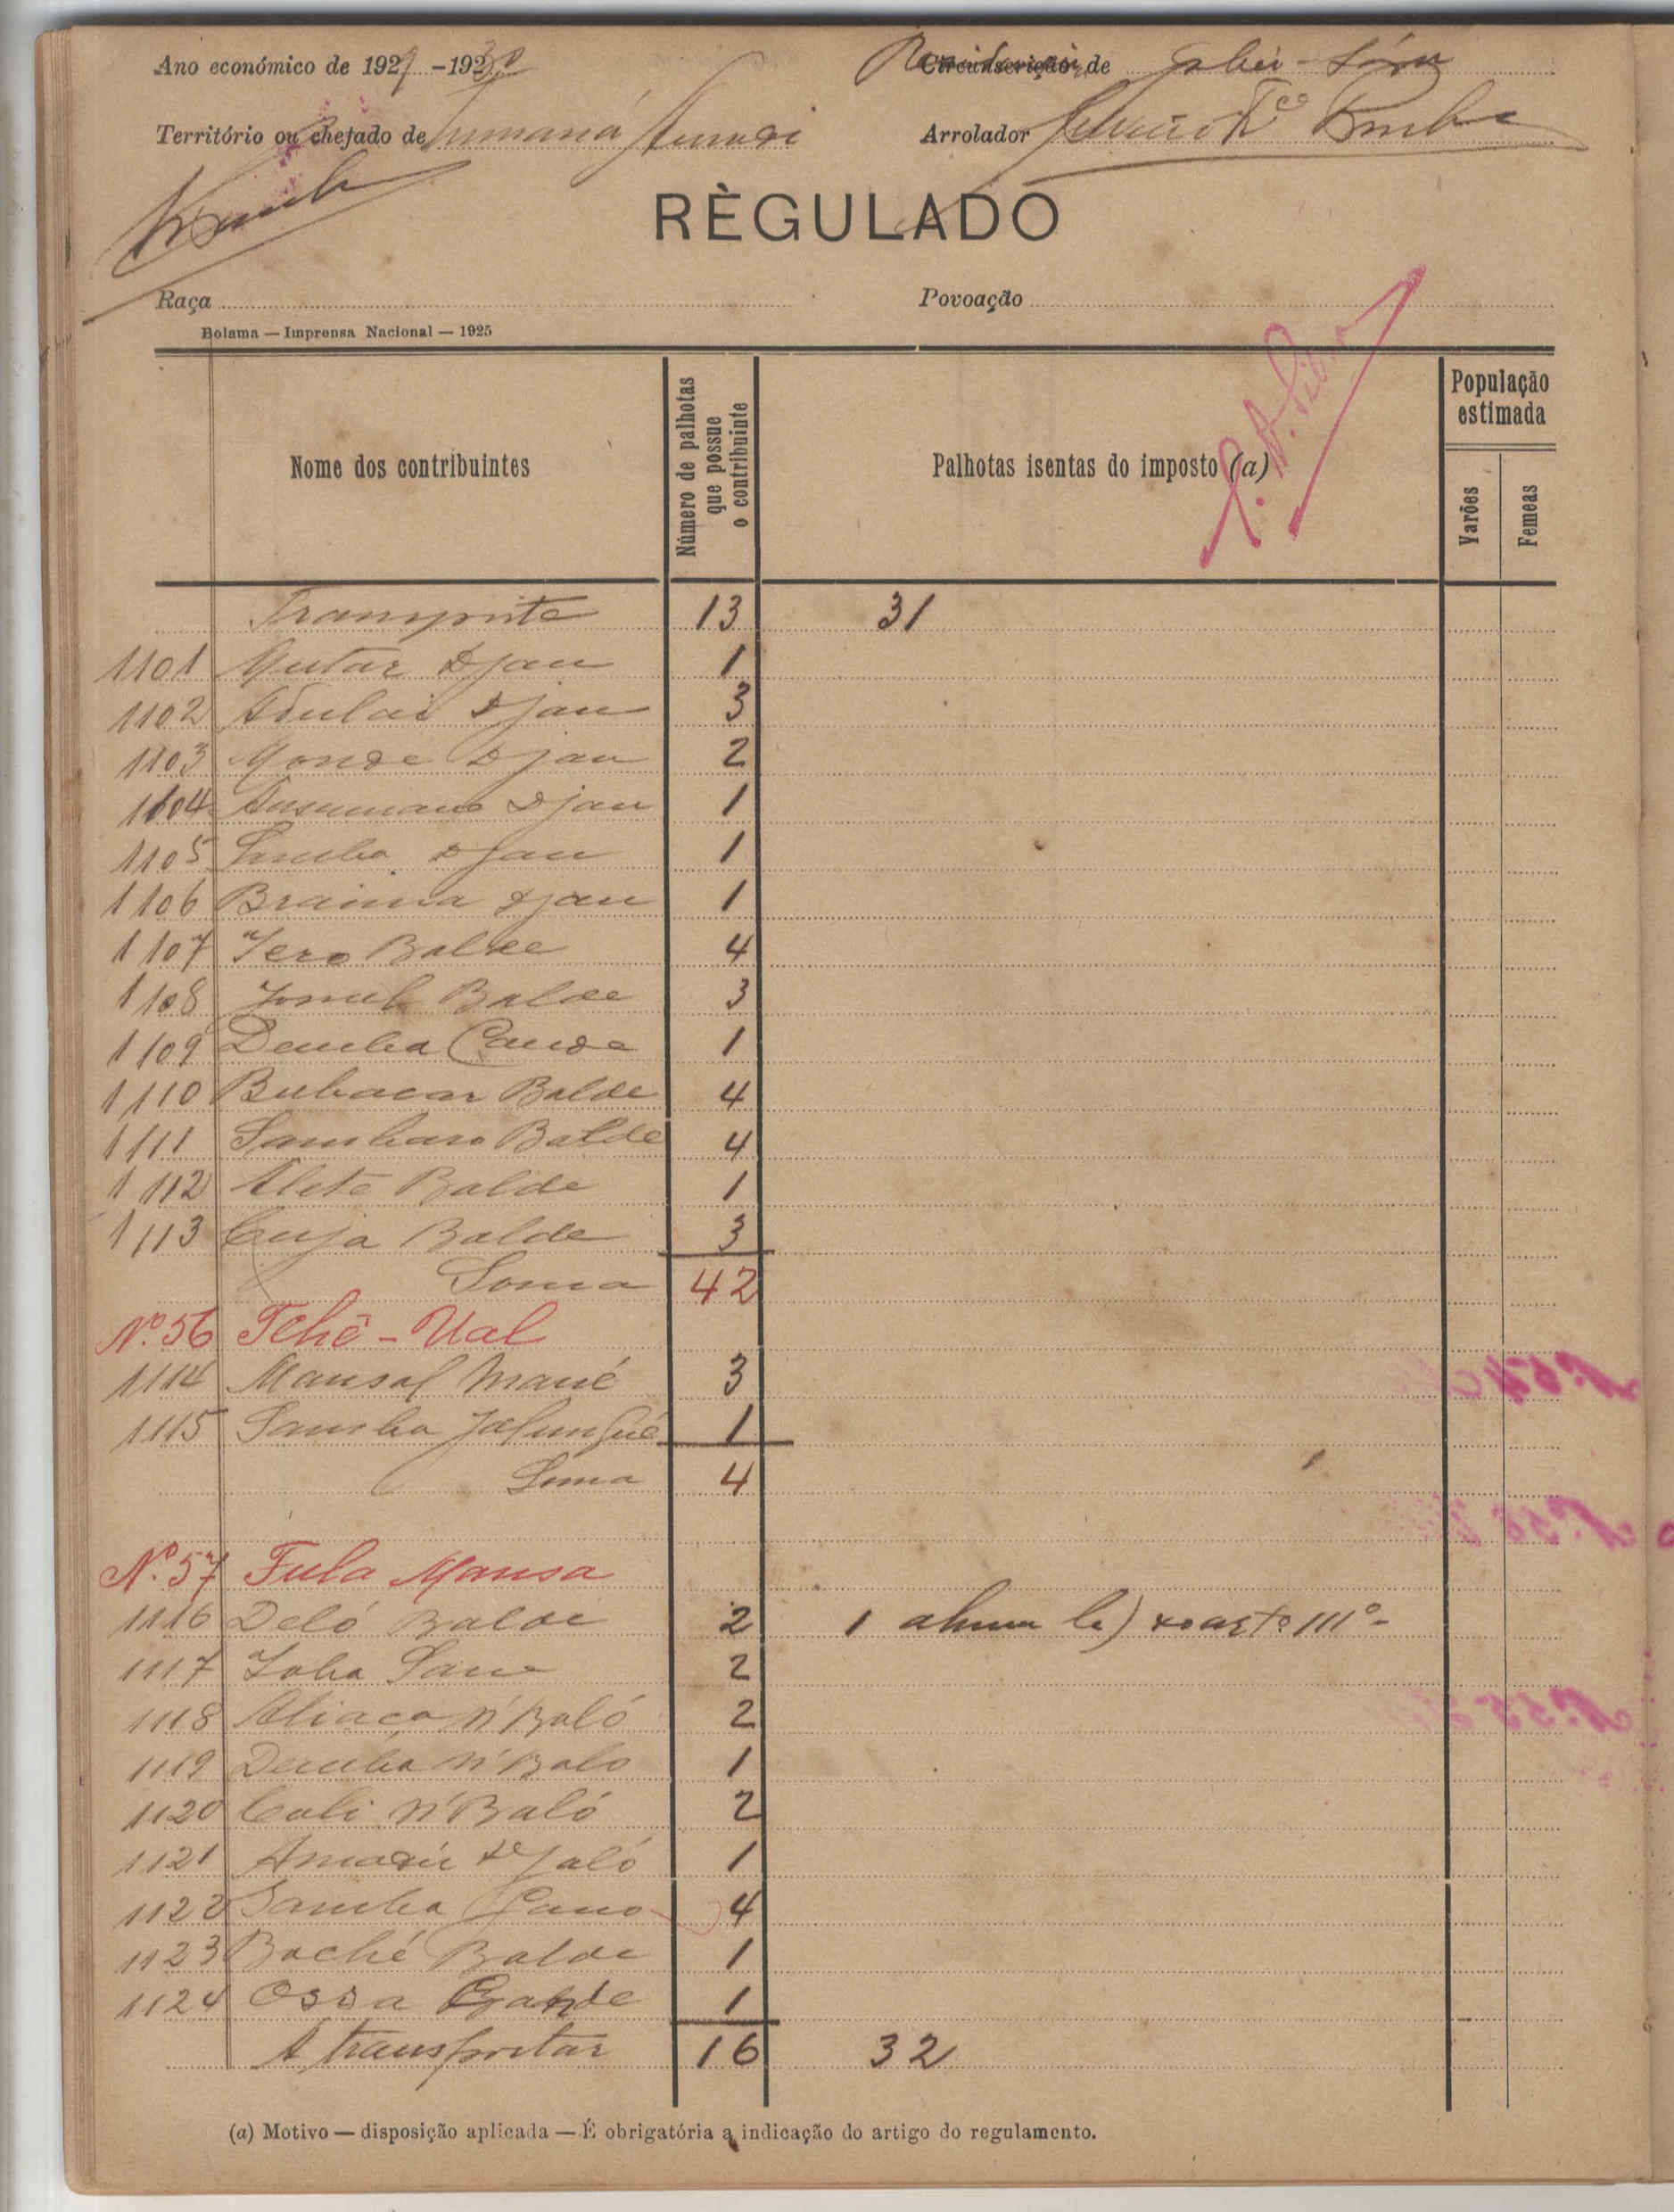 Ano económico de 1929-1930
de Gabú-Sára
Território ou chefado de Tumaná
Arrolador
RÈGULADO
Raça
Povoação
Bolama — Imprensa Nacional — 1925
Nome dos contribuintes
Número de palhotas que possue o contribuinte
Palhotas isentas do imposto (a)
População estimada
Varões
Femeas
Transporte 13 31
1101 Mutar Djau 1
1102 Adulai Djau 3
1103 Monde Djau 2
1104 Ansumane Djau 1
1105 Samba Djau 1
1106 Braima Djau 1
1107 Iero Balde 4
1108 Balde 3
1109 Demba Cande 1
1110 Bubacar Balde 4
1111 Sambaro Balde 4
1112 Balde 1
1113 Cuja Balde 3
Soma 42
Nº 56 Tchê-Ual
1114 Mansal Mané 3
1115 Samba 1
Soma 4
Nº 57 Fula Mansa
1116 Deló Balde 2 1 alinea b) do artº 111º-
1117 2
1118 Aliaça N'Baló 2
1119 Demba N'Balo 1
1120 Cali N'Baló 2
1121 Amadú Djaló 1
1122 Samba Gano 4
1123 Boché Balde 1
1124 1
A transportar 16 32
(a) Motivo — disposição aplicada — É obrigatória a indicação do artigo do regulamento.